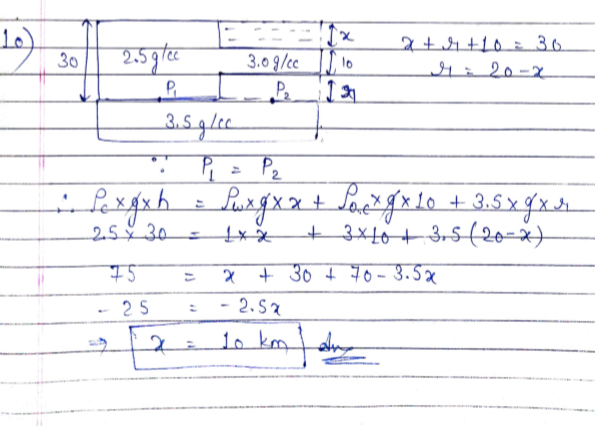 10)
30
2.5 g/cc
3.0 g/cc
x
10
r
P₁
P₂
3.5 g/cc
x + r + 10 = 30
r = 20 - x
∵ P₁ = P₂
∴ ρc × g × h = ρw × g × x + ρo.c × g × 10 + 3.5 × g × r
2.5 × 30 = 1 × x + 3 × 10 + 3.5 (20 - x)
75 = x + 30 + 70 - 3.5x
- 25 = - 2.5x
⇒ x = 10 km Ans